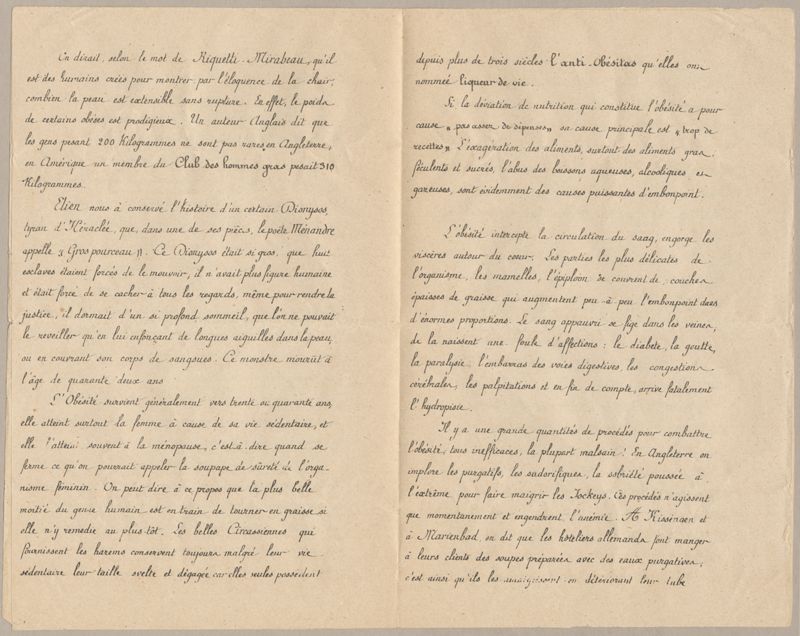 On dirait, selon le mot de Riquetti-Mirabeau, qu'il
est des humains créés pour montrer, par l'éloquence de la chair,
combien la peau est extensible sans rupture. En effet, le poids
de certains obèses est prodigieux. Un auteur Anglais dit que
les gens pesant 200 kilogrammes ne sont pas rares, en Angleterre,
en Amérique un membre du Club des hommes gras pesait 310
kilogrammes.
Elien nous à conservé l'histoire d'un certain Dionysos,
tyran d'Héraclée, que, dans une de ses pièces, le poète Ménandre
appelle « Gros pourceau ». Ce Dionysos était si gros, que huit
esclaves étaient forcés de le mouvoir, il n'avait plus figure humaine
et était forcé de se cacher à tous les regards, même pour rendre la
justice, il dormait d'un si profond sommeil, que l'on ne pouvait
le reveiller qu'en lui enfonçant de longues aiguilles dans la peau,
ou en couvrant son corps de sangsues. Ce monstre mourût à
l'âge de quarante deux ans
L'Obésité survient généralement vers trente ou quarante ans,
elle atteint surtout la femme à cause de sa vie sédentaire, et
elle l'atteint souvent à la ménopause, c'est-à-dire quand se
ferme ce qu'on pourrait appeler la soupape de sûreté de l'orga-
nisme féminin. On peut dire à ce propos que la plus belle
moitié du genre humain est en train de tourner en graisse si
elle n'y remedie au plus tôt. Les belles Circassiennes qui
fournissent les harems conservent toujours malgré leur vie
sédentaire leur taille svelte et dégagée car elles seules possèdent
depuis plus de trois siècles l'anti-Obésitas qu'elles ont
nommée liqueur de vie.
Si la déviation de nutrition qui constitue l'obésité a pour
cause « pas assez de dépenses » sa cause principale est « trop de
recettes » L'exagération des aliments, surtout des aliments gras,
féculents et sucrés, l'abus des boissons aqueuses, alcooliques et
gazeuses, sont évidemment des causes puissantes d'embonpoint.
L'obésité intercepte la circulation du saag, engorge les
viscères autour du coeur. Les parties les plus délicates de
l'organisme, les mamelles, l'épiploon se couvrent de couches
épaisses de graisse qui augmentent peu à peu l'embonpoint dans
d'énormes proportions. Le sang appauvri se fige dans les veines,
de la naissent une foule d'affections : le diabète, la goutte,
la paralysie, l'embarras des voies digestives, les congestions
cérébrales, les palpitations et en fin de compte, arrive fatalement
l'hydropisie.
Il y a une grande quantités de procédés pour combattre
l'obésité, tous inefficaces, la plupart malsain ! En Angleterre on
implore les purgatifs, les sudorifiques, la sobriété poussée à
l'extrême pour faire maigrir les Jockeys. Ces procédés n'agissent
que momentanement et engendrent l'anémie. A Kissengen et
à Marienbad, on dit que les hoteliers allemands font manger
à leurs clients des soupes préparées avec des eaux purgatives,
c'est ainsi qu'ils les amaigrissent en détériorant leur tube